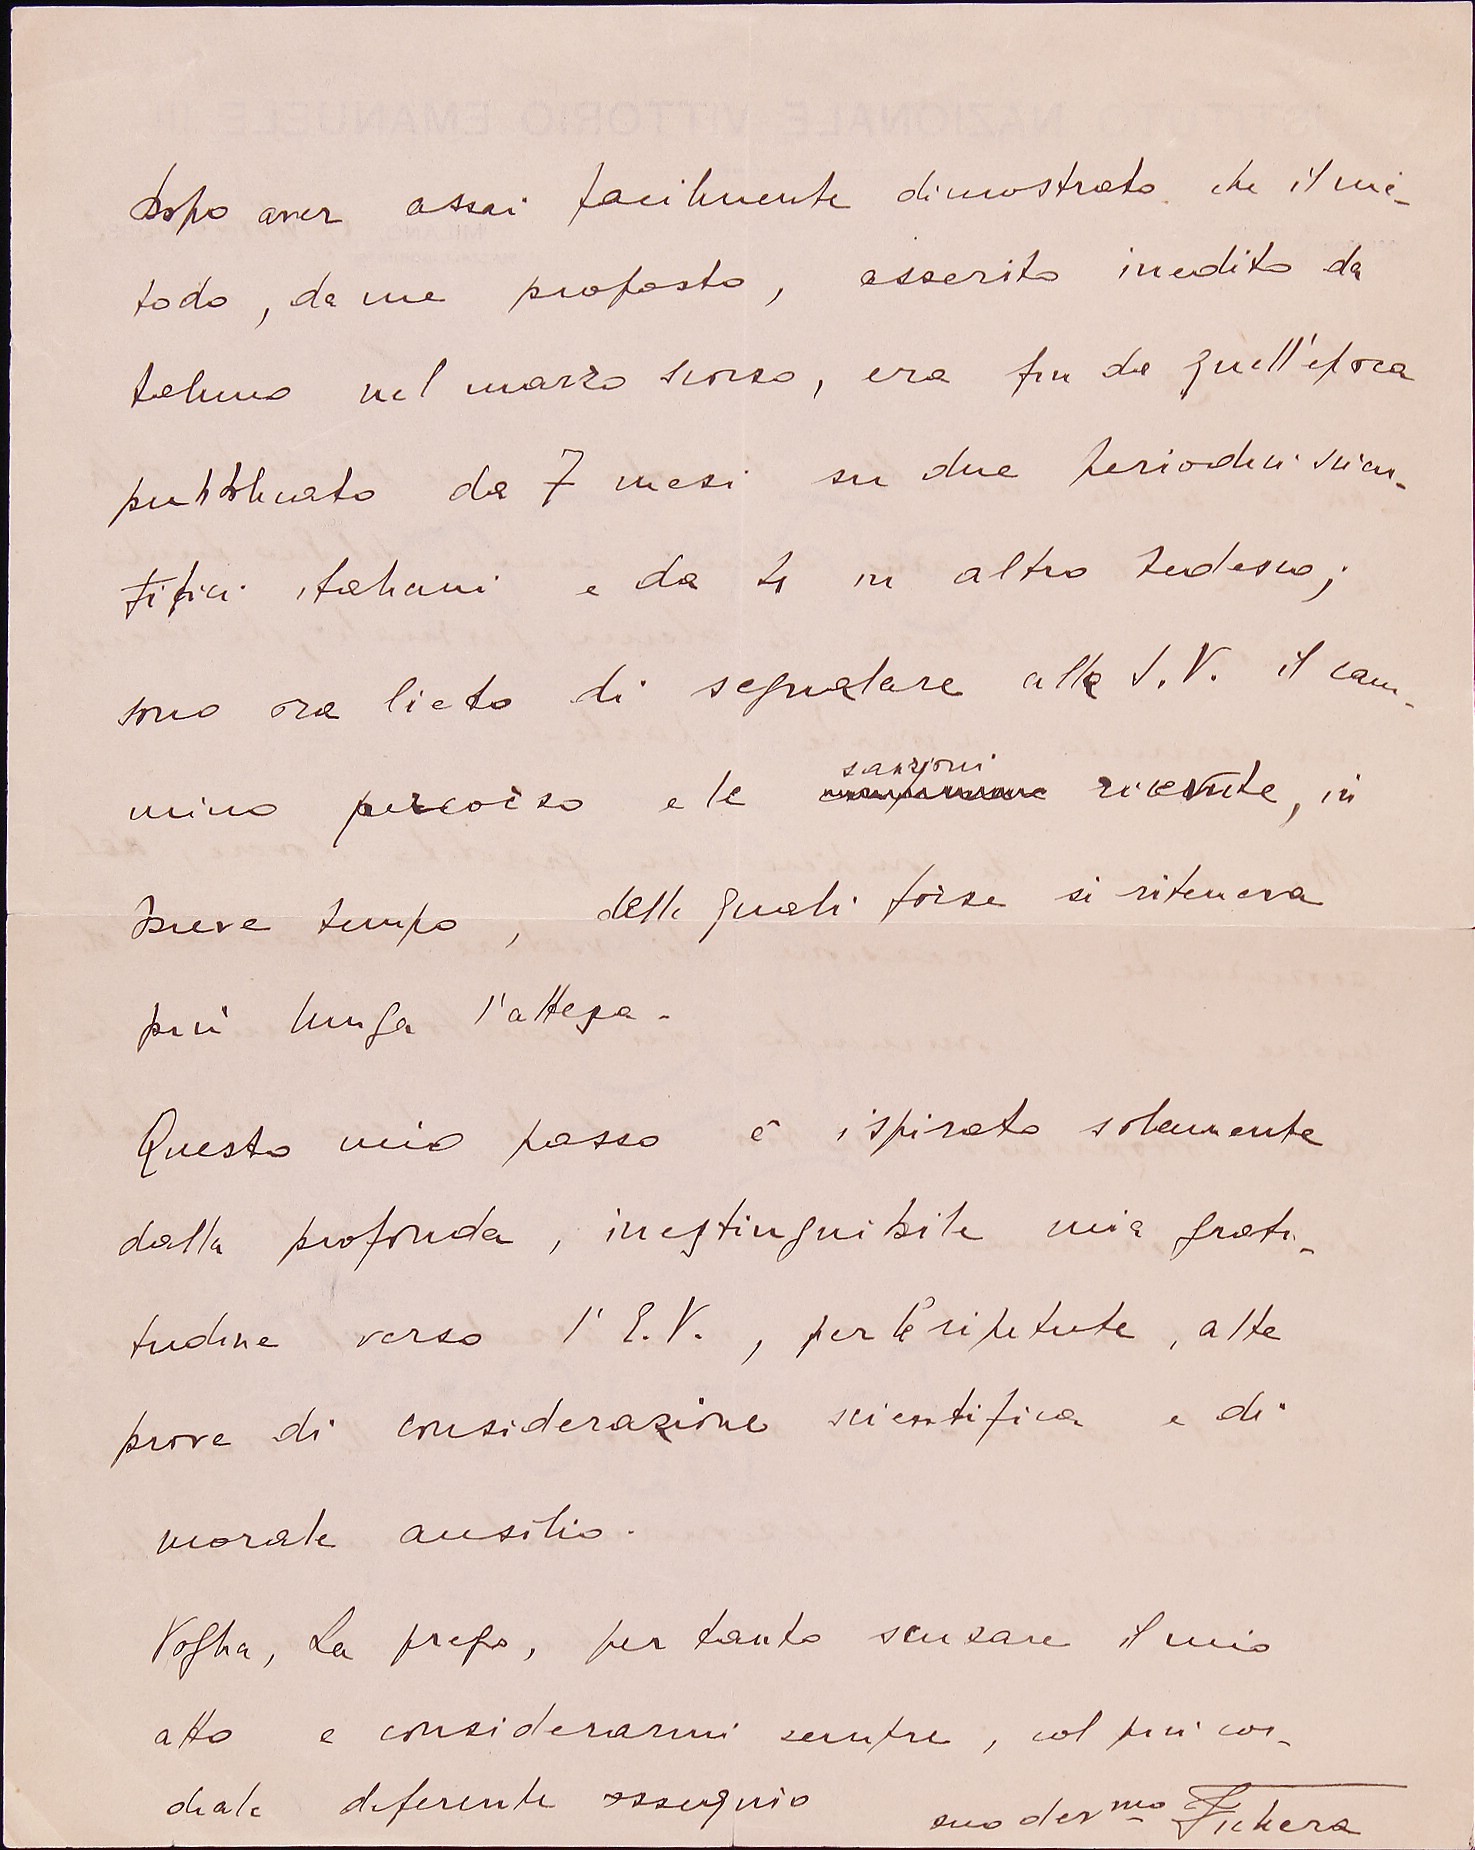 Dopo aver assai facilmente dimostrato che il me-
todo, da me proposto, asserito inedito da
taluno nel marzo scorso, era fin da quell'epoca
pubblicato da 7 mesi su due periodici scien-
tifici italiani e da 4 in altro tedesco;
sono ora lieto di segnalare alla S.V. il cam-
mino percorso e le sanzioni ricevute, in
breve tempo, delle quali forse si riteneva
più lunga l'attesa.
Questo mio passo è ispirato solamente
dalla profonda, inestinguibile mia grati-
tudine verso l'E.V., per le ripetute, alte
prove di considerazione scientifica e di
morale ausilio.
Voglia, La prego, per tanto scusare il mio
atto e considerarmi sempre, col più cor-
diale deferente ossequio
suo dev.mo Fichera